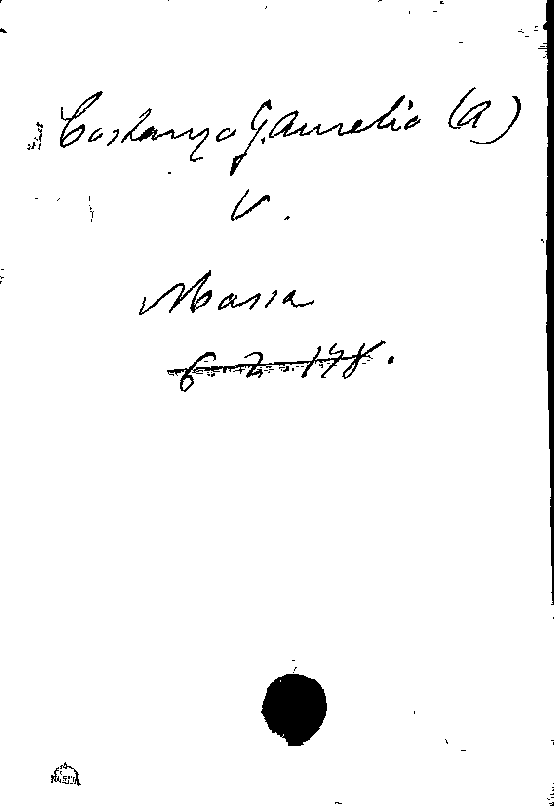 Costanzo G. Aurelio (A)
V.
Massa
6. Z. 178.